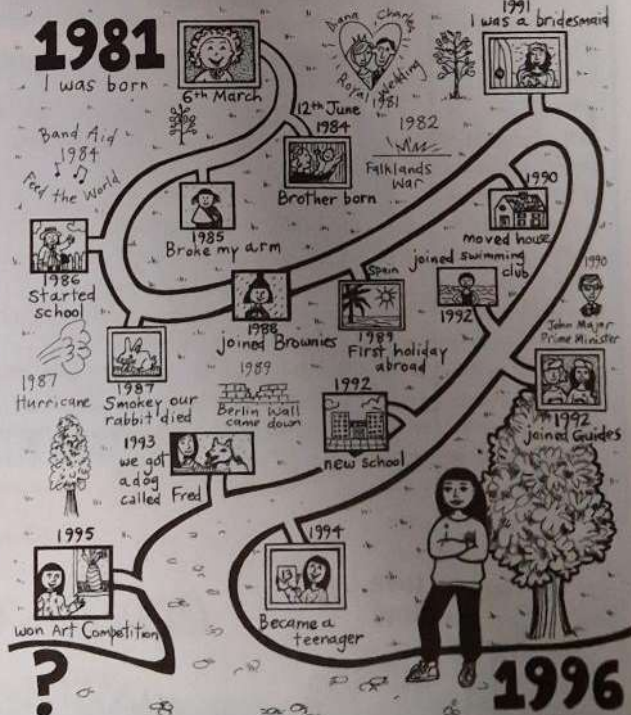 1981
I was born
6th March
Diana Charles
Royal Wedding
1981
1991
I was a bridesmaid
12th June
1984
Brother born
1982
Falklands
War
Band Aid
1984
Feed the World
1985
Broke my arm
1990
moved house
1986
Started
school
1988
joined Brownies
Spain
1989
First holiday
abroad
joined swimming
club
1992
1990
John Major
Prime Minister
1987
Hurricane
1987
Smokey our
rabbit died
1989
Berlin Wall
came down
1992
new school
1992
joined Guides
1993
we got
a dog
called Fred
1994
Became a
teenager
1995
won Art Competition
?
1996